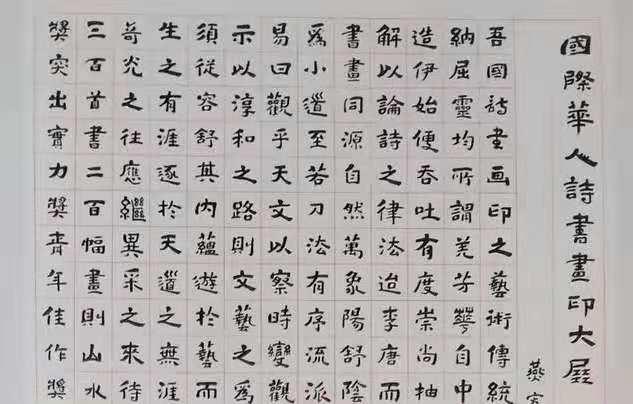 國際華人詩書畫印大展
燕
吾國詩書画印之藝術傳統
納屈靈均所謂羌芳華自中
造伊始便吞吐有度崇尚抽
解以論詩之律法迨李唐而
書畫同源自然萬象陽舒陰
為小道至若刀法有序流派
易曰觀乎天文以察時變觀
示以淳和之路則文藝之為
須從容舒其內蘊遊於藝而
生之有涯逐於天道之無涯
奇光之往應繼異采之來待
三百首書二百幅畫則山水
獎突出實力獎青年佳作獎